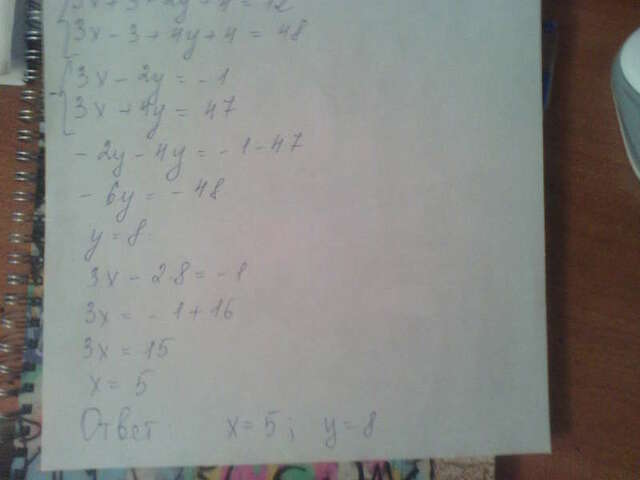 3x + 3 - 2y + 4 = 12
3x - 3 + 4y + 4 = 48
3x - 2y = -1
3x + 4y = 47
- 2y - 4y = - 1 - 47
- 6y = - 48
y = 8
3x - 2·8 = - 1
3x = - 1 + 16
3x = 15
x = 5
Ответ: x = 5; y = 8